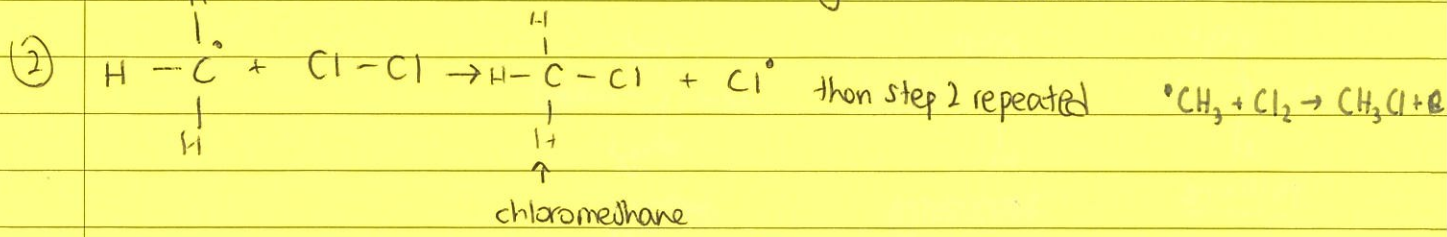 H H
② H — C• + Cl – Cl → H – C – Cl + Cl• thon step 2 repeated •CH₃ + Cl₂ → CH₃Cl +
H H
↑
chloromethane